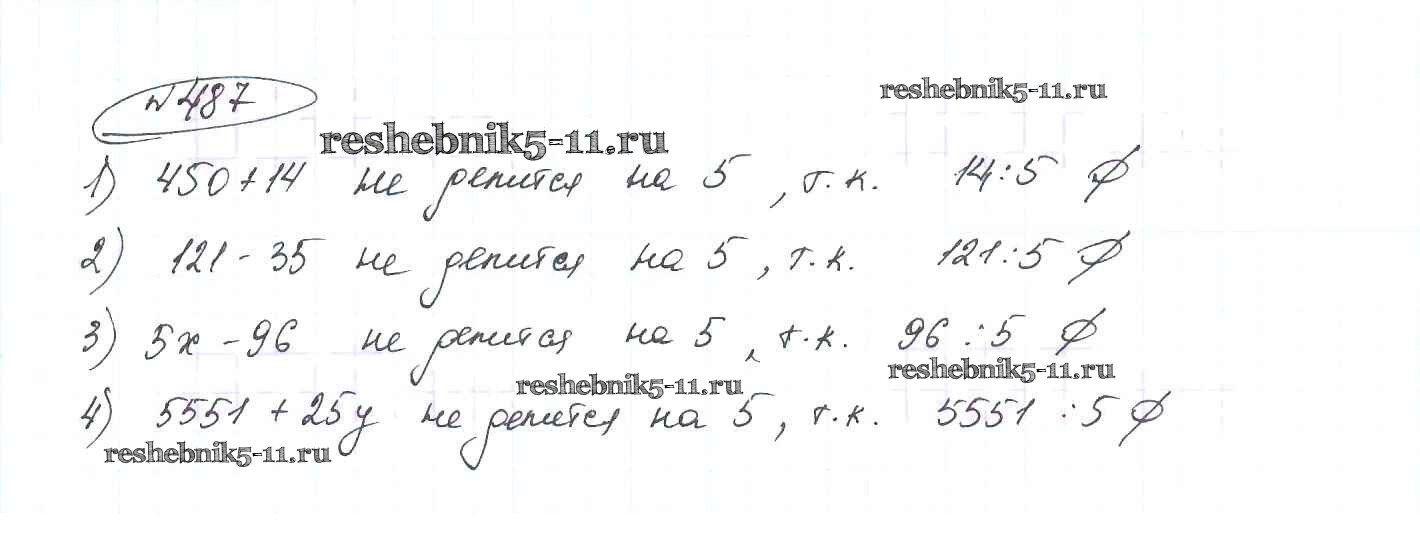 №487
reshebnik5-11.ru
reshebnik5-11.ru
1) 450+14 не делится на 5, т.к. 14:5 ∅
2) 121-35 не делится на 5, т.к. 121:5 ∅
3) 5x-96 не делится на 5, т.к. 96:5 ∅
reshebnik5-11.ru
reshebnik5-11.ru
4) 5551+25y не делится на 5, т.к. 5551:5 ∅
reshebnik5-11.ru